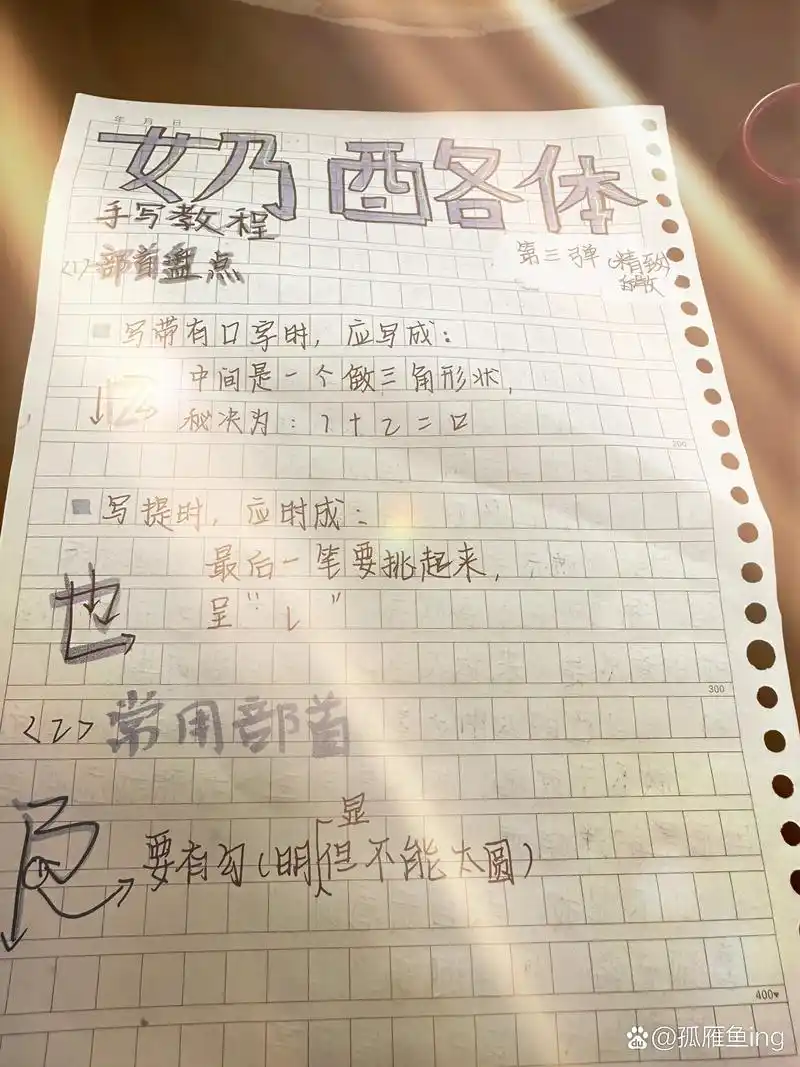 年 月 日
奶酪体
手写教程
第三弹(精致)
<1>部首盘点
写带有口字时，应写成：
中间是一个微三角形状，
秘决为：1+2=口
200
写提时，应时成：
最后一笔要挑起来，
呈"㇄"
也
300
<2>常用部首
要有勾(明显但不能太圆)
400
@孤雁鱼ing